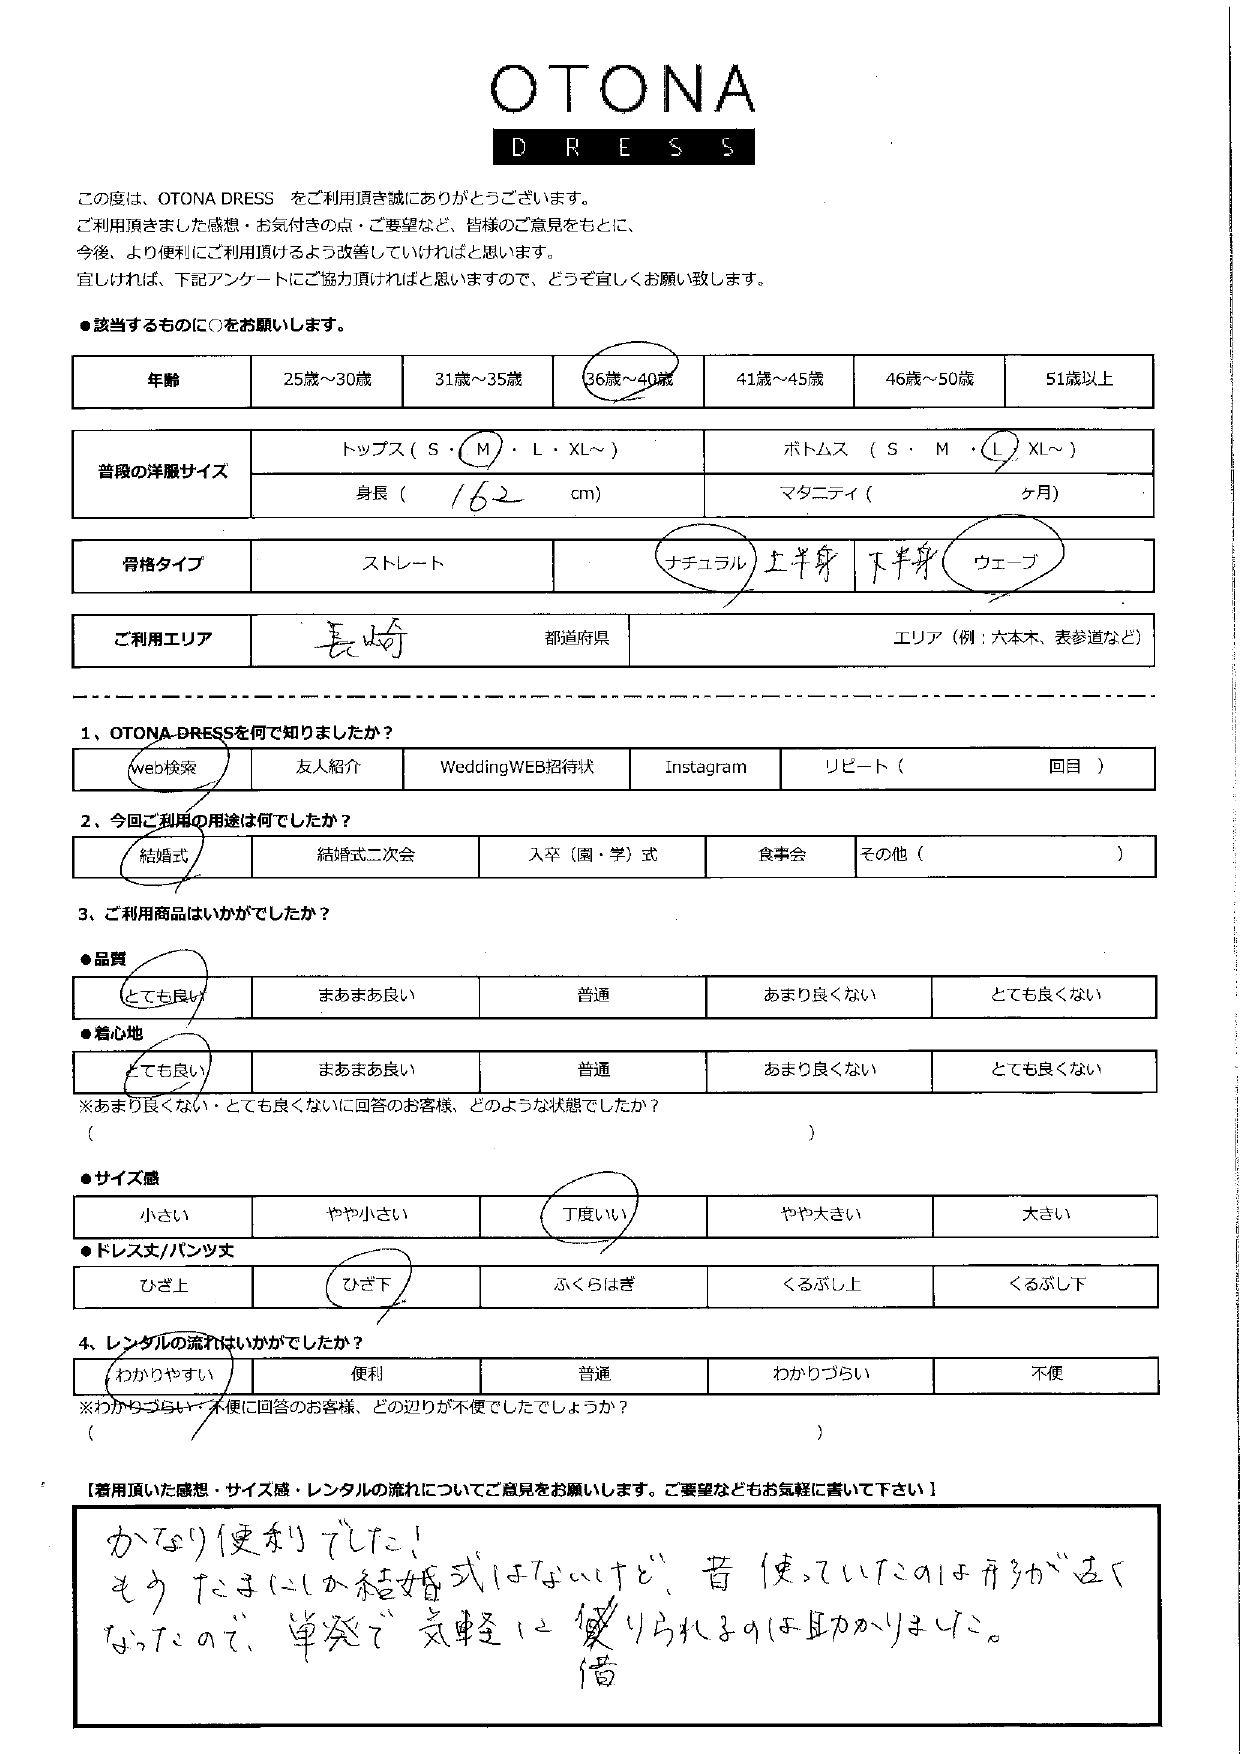 OTONA
DRESS
この度は、OTONA DRESS をご利用頂き誠にありがとうございます。
ご利用頂きました感想・お気付きの点・ご要望など、皆様のご意見をもとに、
今後、より便利にご利用頂けるよう改善していければと思います。
宜しければ、下記アンケートにご協力頂ければと思いますので、どうぞ宜しくお願い致します。
●該当するものに○をお願いします。
年齢 25歳～30歳 31歳～35歳 36歳～40歳 41歳～45歳 46歳～50歳 51歳以上
普段の洋服サイズ トップス ( S ・ M ・ L ・ XL～ ) ボトムス ( S ・ M ・ L XL～ )
身長 ( 162 cm) マタニティ ( ヶ月)
骨格タイプ ストレート ナチュラル 上半身 下半身 ウェーブ
ご利用エリア 長崎 都道府県 エリア（例：六本木、表参道など）
1、OTONA DRESSを何で知りましたか？
web検索 友人紹介 WeddingWEB招待状 Instagram リピート（ 回目 ）
2、今回ご利用の用途は何でしたか？
結婚式 結婚式二次会 入卒（園・学）式 食事会 その他（ ）
3、ご利用商品はいかがでしたか？
●品質
とても良い まあまあ良い 普通 あまり良くない とても良くない
●着心地
とても良い まあまあ良い 普通 あまり良くない とても良くない
※あまり良くない・とても良くないに回答のお客様、どのような状態でしたか？
( )
●サイズ感
小さい やや小さい 丁度いい やや大きい 大きい
●ドレス丈/パンツ丈
ひざ上 ひざ下 ふくらはぎ くるぶし上 くるぶし下
4、レンタルの流れはいかがでしたか？
わかりやすい 便利 普通 わかりづらい 不便
※わかりづらい・不便に回答のお客様、どの辺りが不便でしたでしょうか？
( )
【着用頂いた感想・サイズ感・レンタルの流れについてご意見をお願いします。ご要望などもお気軽に書いて下さい】
かなり便利でした！
もう たまにしか結婚式はないけど、昔 使っていたのは形が古く
なったので、単発で 気軽に りられるのは助かりました。
借